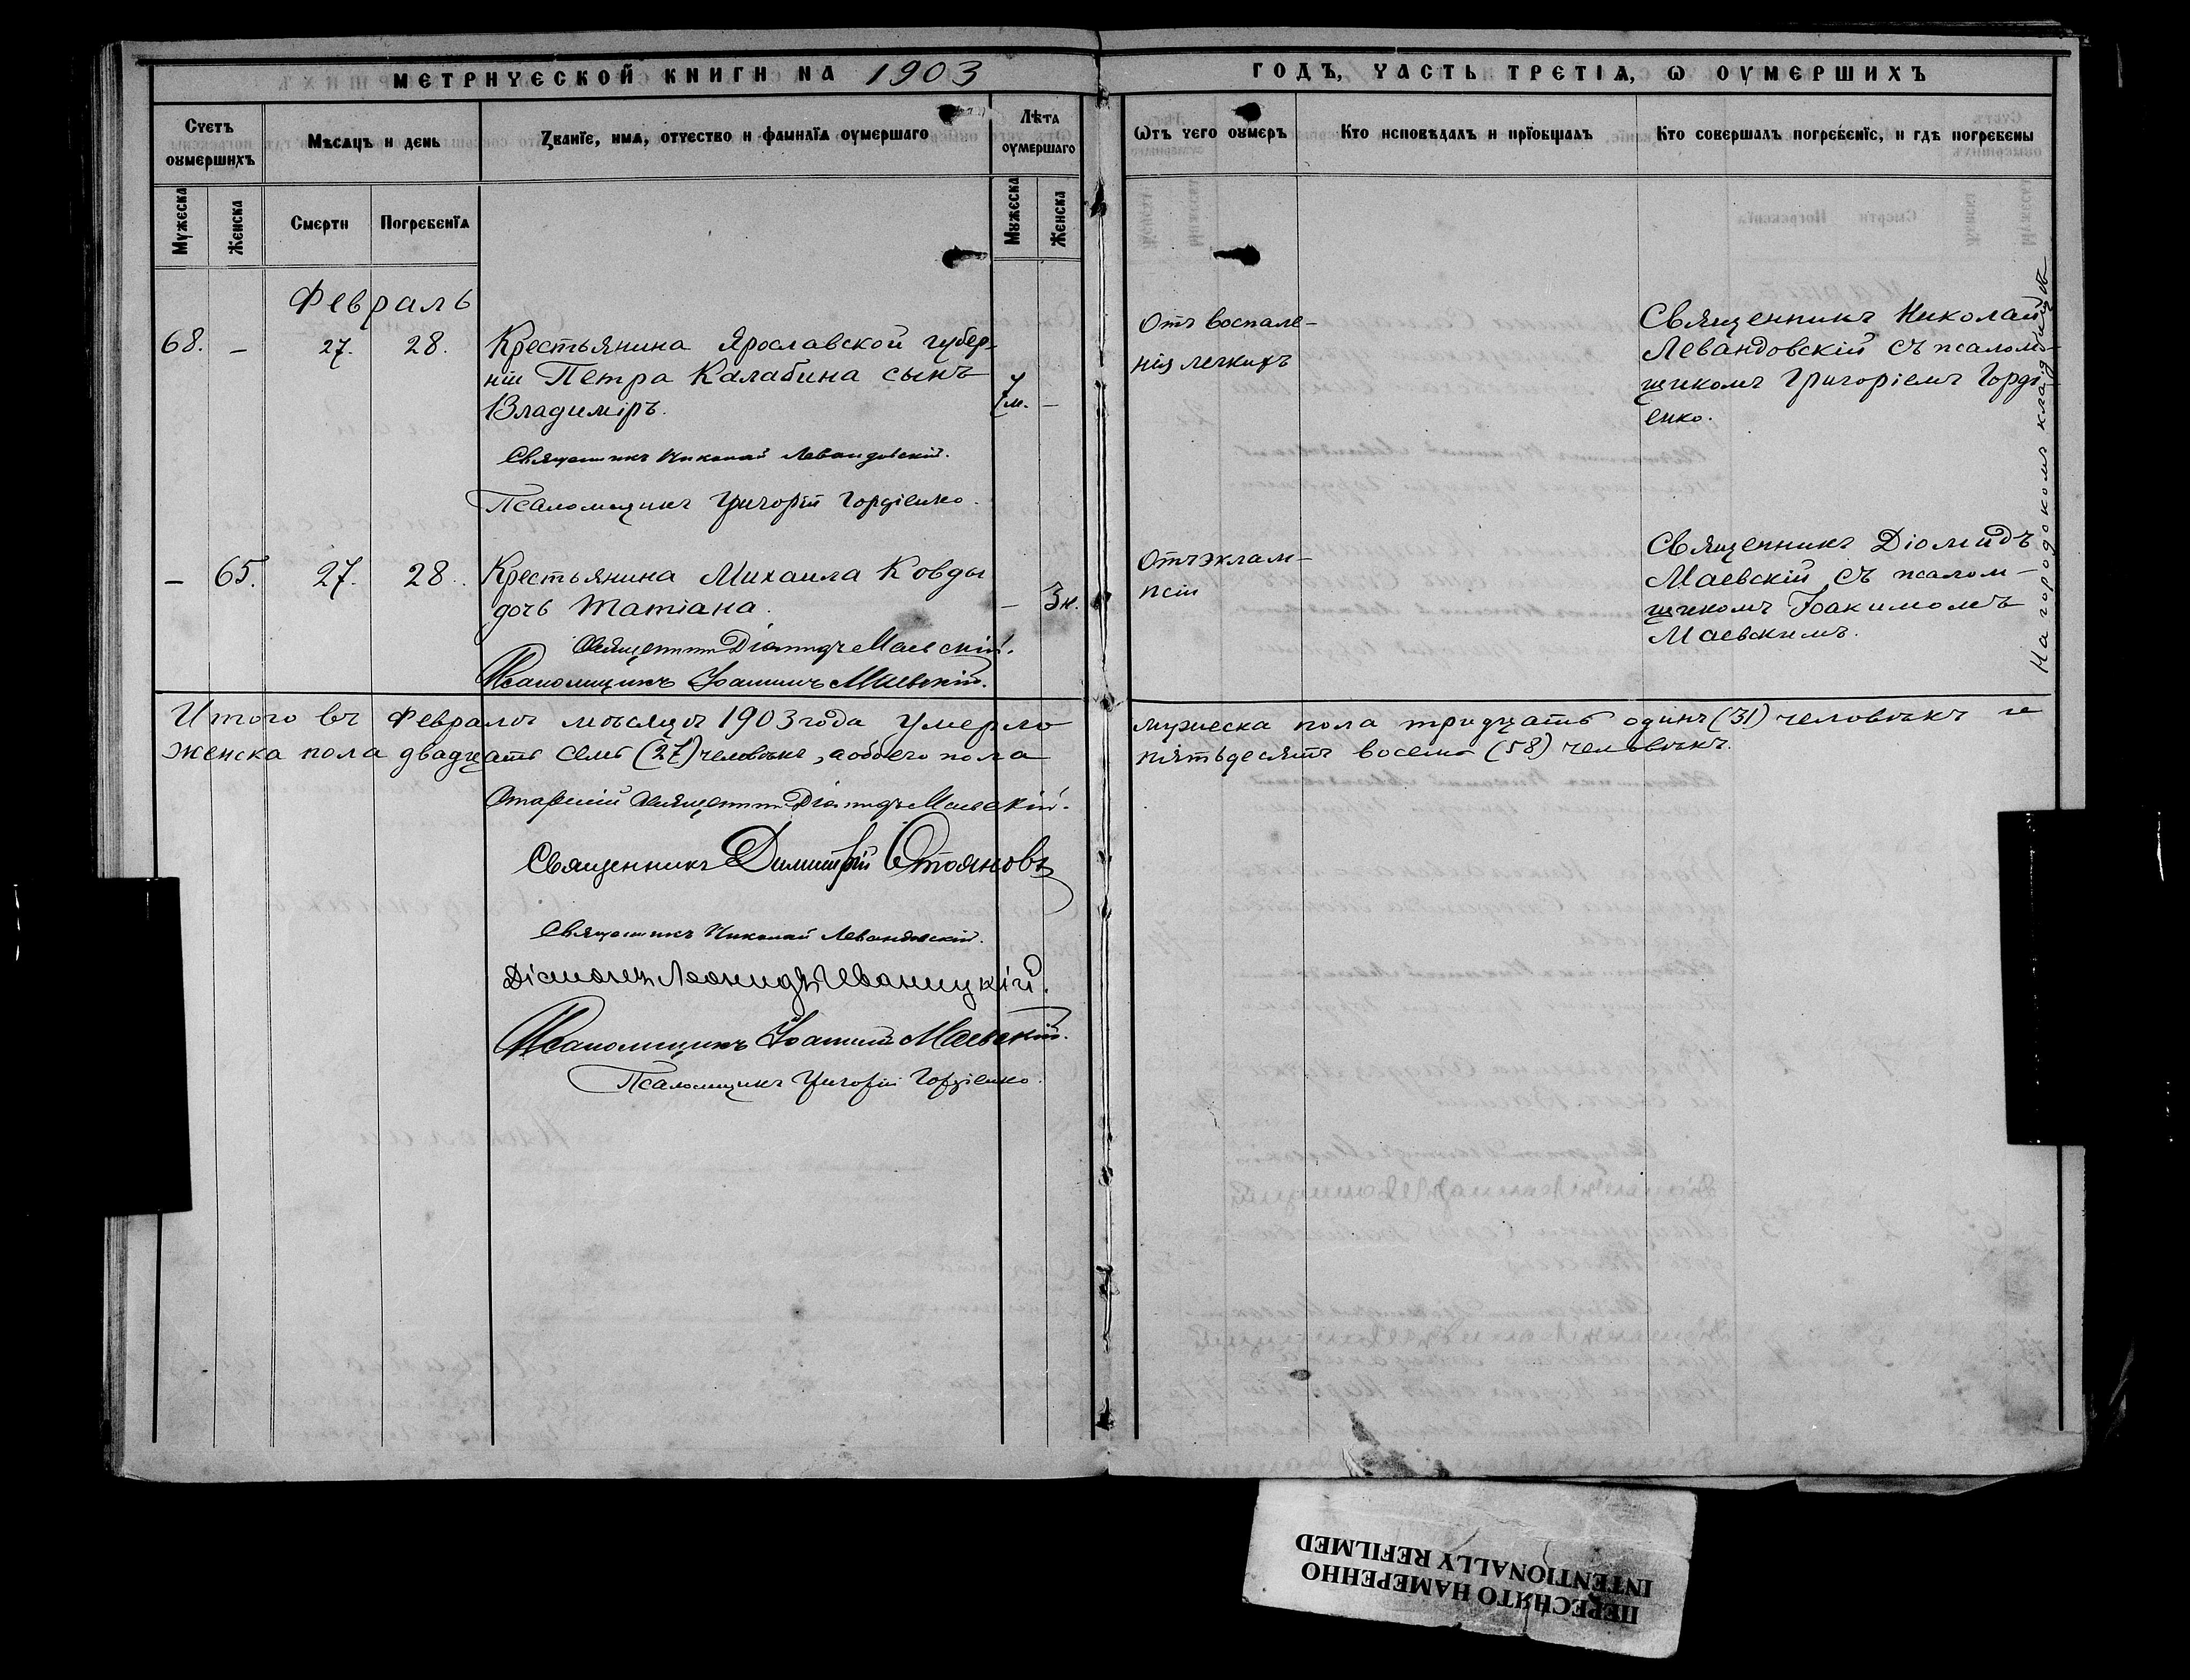 МЕТРИЧЕСКОЙ КНИГИ НА 1903
ГОДЪ, ЧАСТЬ ТРЕТІЯ, Ѡ ОУМЕРШИХЪ
Счетъ оумершихъ
Мѣсяцъ и день
Званїе, имя, отчество и фамилїя оумершаго
Лѣта оумершаго
Мужеска
Женска
Смерти
Погребенїя
Мужеска
Женска
Ѿтъ чего оумеръ
Кто исповѣдалъ и прїобщалъ
Кто совершалъ погребенїе, и гдѣ погребены
Февраль
68. – 27. 28. Крестьянина Ярославской губер-
ніи Петра Калабина сынъ
Владиміръ. 7м. –
Отъ воспале-
нія легкихъ
Священникъ Николай
Левандовскій съ псалом-
щикомъ Григоріемъ Горді-
енко.
Священникъ Николай Левандовскій.
Псаломщикъ Григорій Гордіенко.
– 65. 27. 28. Крестьянина Михаила Ковды
дочь Татіана. – 3н.
Отъ эклам-
псіи
Священникъ Діомидъ
Маевскій съ псалом-
щикомъ Іоакимомъ
Маевскимъ.
На городскомъ кладбищѣ
Священникъ Діомидъ Маевскій.
Псаломщикъ Іоакимъ Маевскій.
Итого въ Февралѣ мѣсяцѣ 1903 года умерло мужеска пола тридцать одинъ (31) человѣкъ и
женска пола двадцать семь (27) человѣкъ, а обоего пола пятьдесятъ восемь (58) человѣкъ.
Старшій Священникъ Діомидъ Маевскій.
Священникъ Димитрій Стояновъ
Священникъ Николай Левандовскій.
Діаконъ Леонидъ Иваницкій.
Псаломщикъ Іоакимъ Маевскій.
Псаломщикъ Григорій Гордіенко.
ПЕРЕСНЯТО НАМЕРЕННО
INTENTIONALLY REFILMED